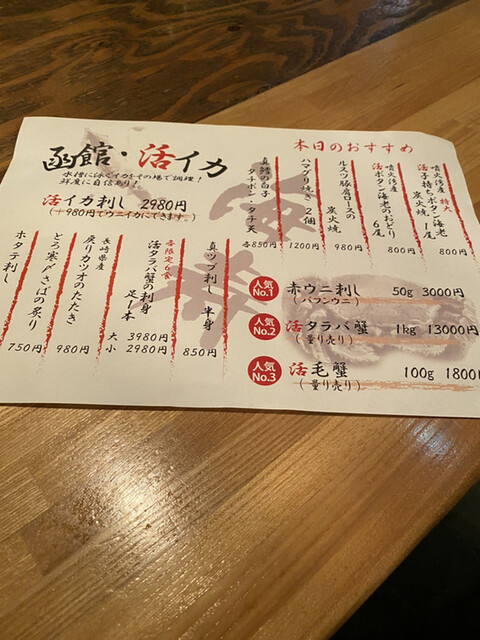 函館・活イカ
水槽に泳ぐイカをその場で調理!
鮮度に自信あり!
活イカ刺し 2980円
(+980円でウニイカにできます。)
本日のおすすめ
噴火湾産 特大
活子持ちボタン海老
炭火焼 1尾
800円
噴火湾産
活ボタン海老のおどり
6尾
800円
ルスツ豚肩ロースの
炭火焼
980円
ハマグリ焼き 2個
1200円
真鱈の白子
タチポン・タチ天
各850円
真ツブ刺し 半身
850円
各限定6食
活タラバ蟹の刺身
足1本
大 3980円
小 2980円
長崎県産
戻りカツオのたたき
980円
とろ寒〆さばの炙り
980円
ホタテ刺し
750円
人気No.1
赤ウニ刺し 50g 3000円
(バフンウニ)
人気No.2
活タラバ蟹 1kg 13000円
(量り売り)
人気No.3
活毛蟹 100g 1800円
(量り売り)